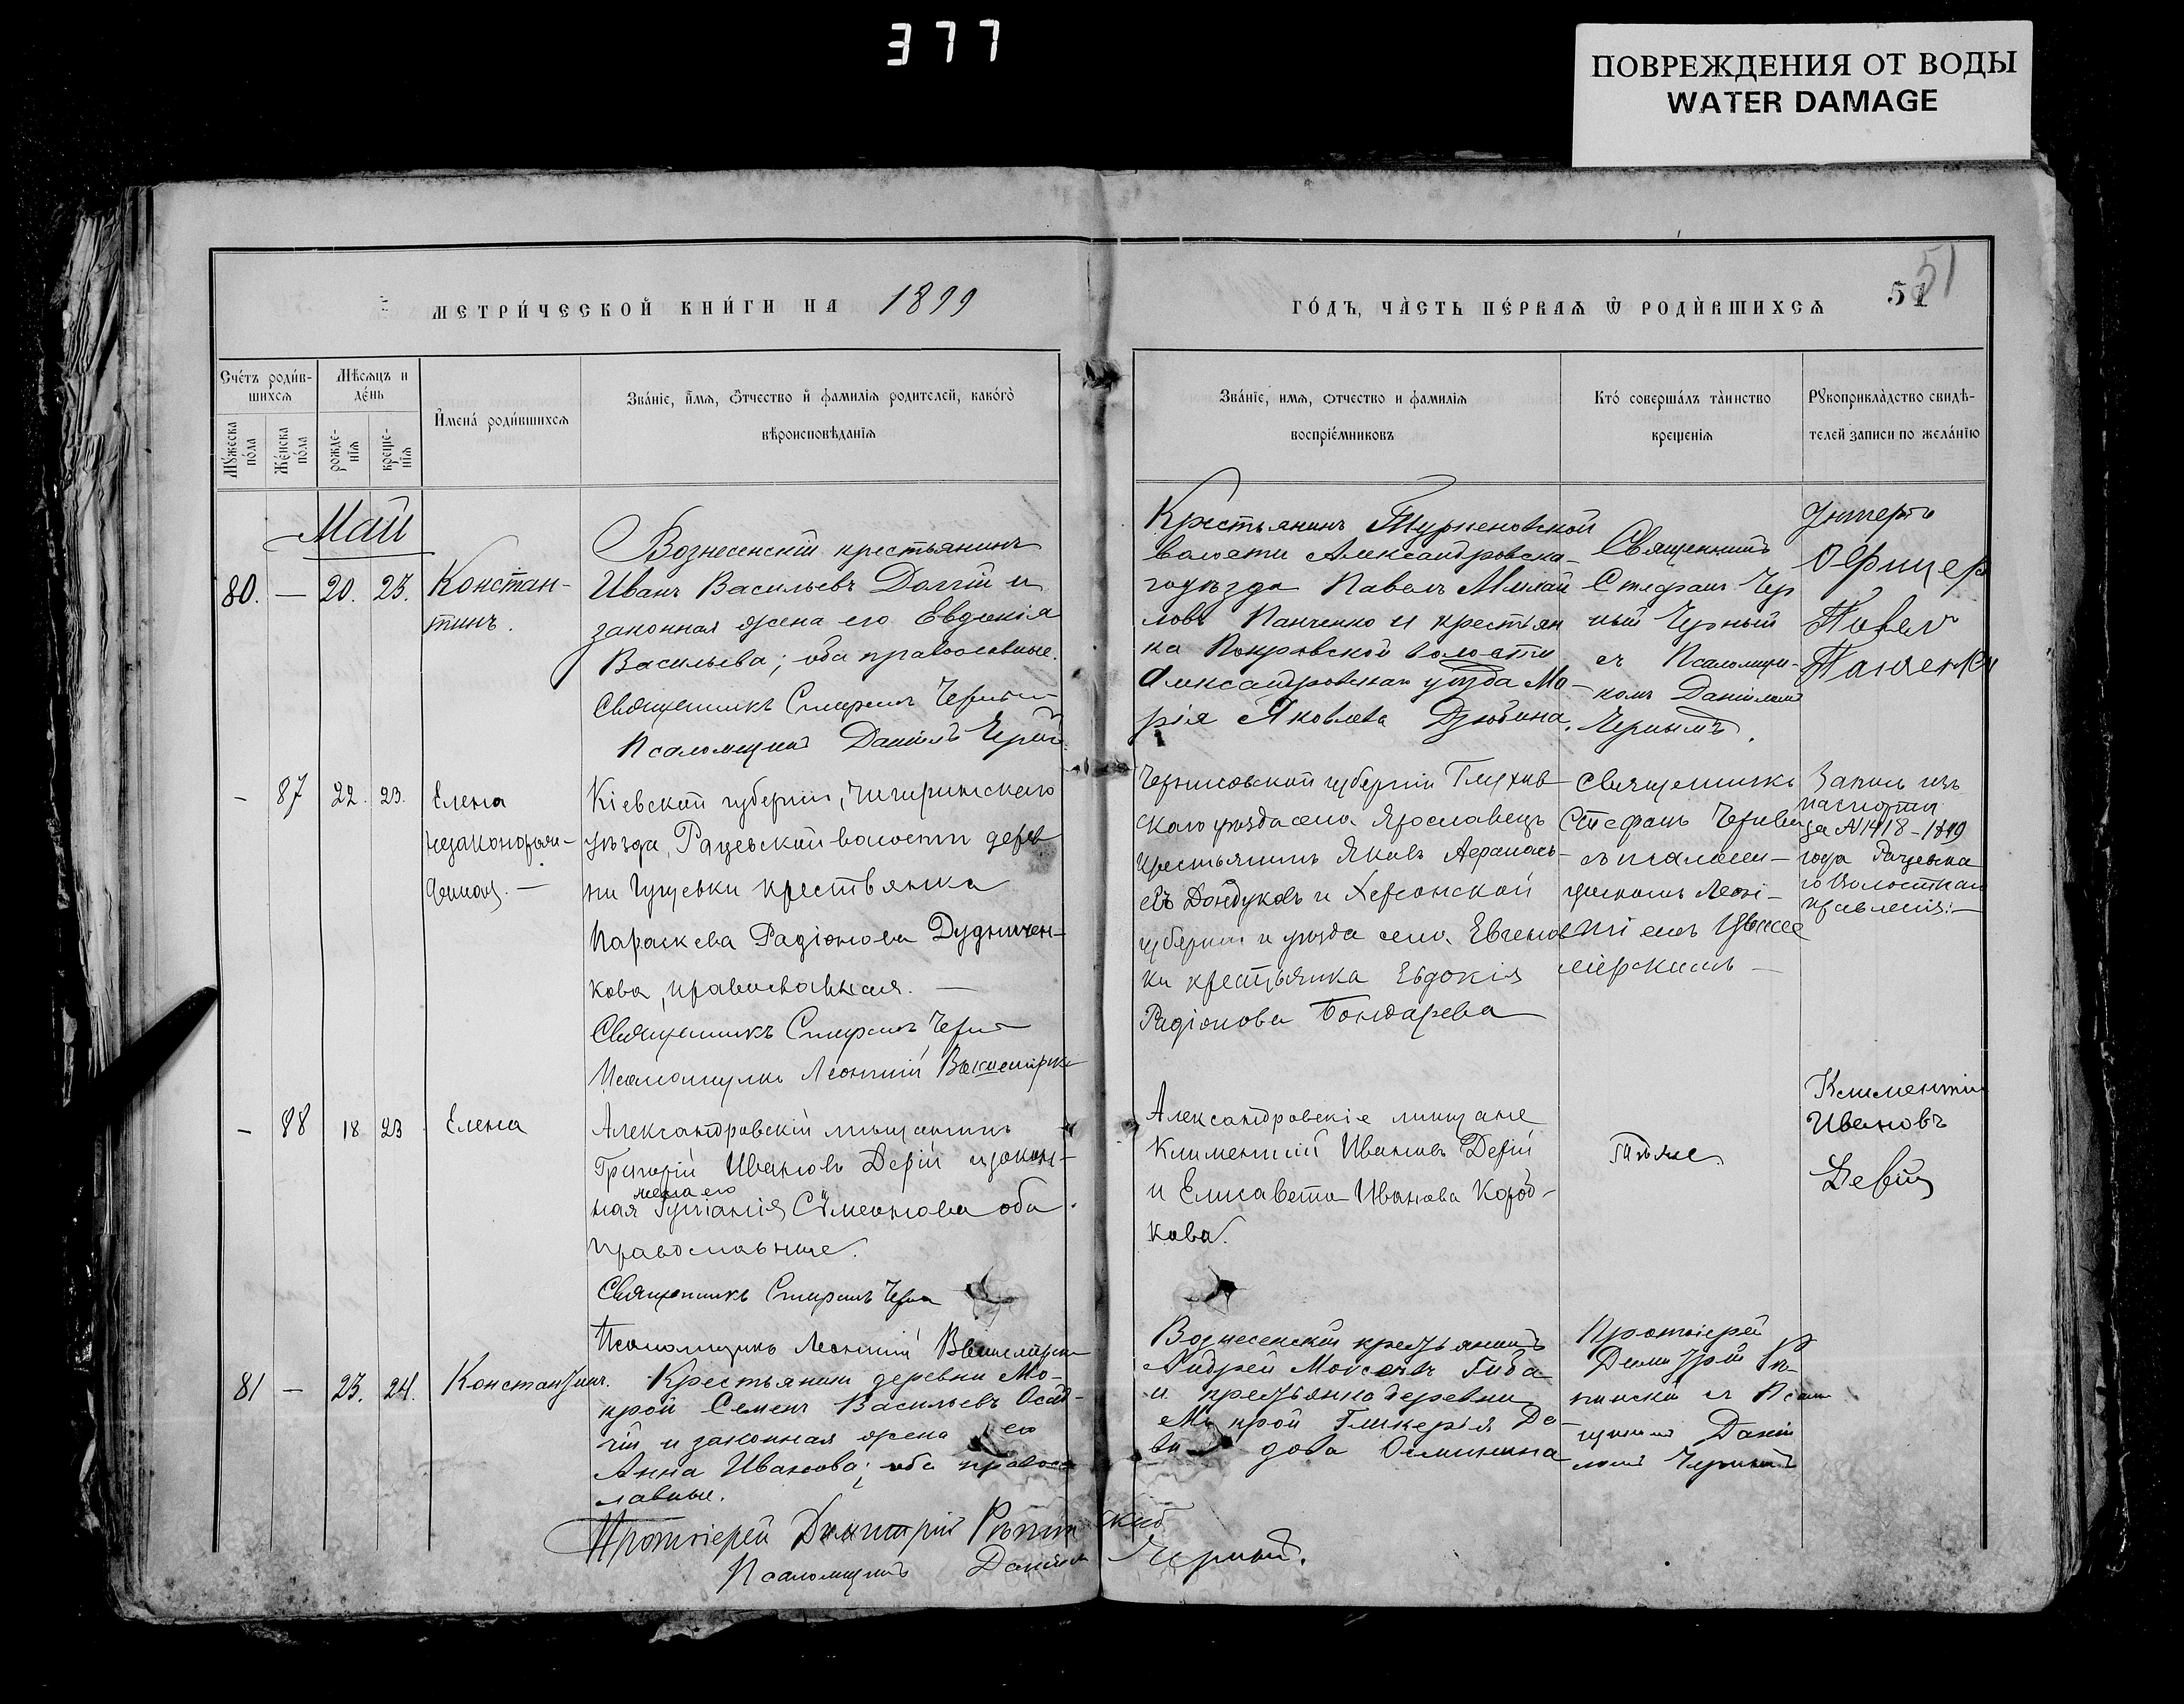 377
ПОВРЕЖДЕНИЯ ОТ ВОДЫ
WATER DAMAGE
МЕТРИ́ЧЕСКОЙ КНИ́ГИ НА 1899
ГО́ДЪ, ЧА̀СТЬ ПЕ́РВАѦ Ѿ РОДИ́ВШИХСѦ 51
51
Сче́тъ роди́в-
шихсѧ
Мѣсѧцъ и
де́нь
Мꙋ́жеска
по́ла
Же́нска
по́ла
рожде-
нїѧ
креще-
нїѧ
И҆мена̀ роди́вшихсѧ
Зва́нїе, и҆́мѧ, ѻ҆́тчество и҆ фамилїѧ родителей, како́гѡ
вѣроисповѣданїѧ
Зва́нїе, имѧ, ѻтчество и фамилїѧ
воспрїе́мниковъ
Кто́ соверша́лъ та̀инство
крещенїѧ
Рꙋкоприкла̀дство свидѣ-
телей записи по жела́нїю
Май
80. — 20. 23. Констан-
тинъ.
Вознесенскій крестьянинъ
Иванъ Васильевъ Долгій и
законная жена его Евдокія
Васильева; оба православные.
Священникъ Стефанъ Черный
Псаломщикъ Даніилъ Черный
Крестьянинъ
волости Александровска-
го уѣзда Павелъ Михай
ловъ Панченко и крестьян
ка Покровской волости
Александровскаго уѣзда Ма-
рія Яковлева Дзюбина.
Священникъ
Стефанъ Чер
ный Черный
съ Псаломщи-
комъ Даніиломъ
Чернымъ.
Унтеръ
Офицер
Павел
Панченко
— 87 22. 23. Елена
незаконорож-
денная. —
Кіевской губерніи, Чигиринскаго
уѣзда, Рацевской волости дерев
ни крестьянка
Параскева Радіонова Дудничен-
кова, православная. —
Священникъ Стефанъ Черный
Псаломщикъ Леонтій
Черниговской губерніи Глухов-
скаго уѣзда села Ярославецъ
крестьянинъ Яковъ Афанась-
евъ Дондуковъ и Херсонской
губерніи и уѣзда села Евгенов
ки крестьянка Евдокія
Радіонова Бондарева
Священникъ
Стефанъ Черный
съ псалом-
щикомъ Леон-
тіемъ
Запись изъ
паспорта
за №1418-1899
года Рацевска
го Волостнаго
правленія: —
— 88 18 23 Елена
Александровскій мѣщанинъ
Григорій Ивановъ Дерій и закон-
жена его
ная Сѵмеонова оба
православные.
Священникъ Стефанъ Черный
Псаломщикъ Леонтій
Александровскіе мѣщане
Климентій Ивановъ Дерій
и Елисавета Иванова Кород-
кова.
Тѣ же.
Климентій
Ивановъ
Дерій
81 — 23. 24. Константинъ.
Крестьянинъ деревни Мо-
крой Семенъ Васильевъ Осад-
чій и законная жена его
Анна Иванова; оба правосл
лавные.
Протоіерей Димитрій Рѣпинскій
Псаломщикъ Даніилъ Черный.
Вознесенскій крестьянинъ
Андрей Моисеевъ Гиба
и крестьянка деревни
Мокрой Гликерія Да-
ви дова
Протоіерей
Димитрій Рѣ-
пинскій съ Псалом
щикомъ Даніи
ломъ Чернымъ